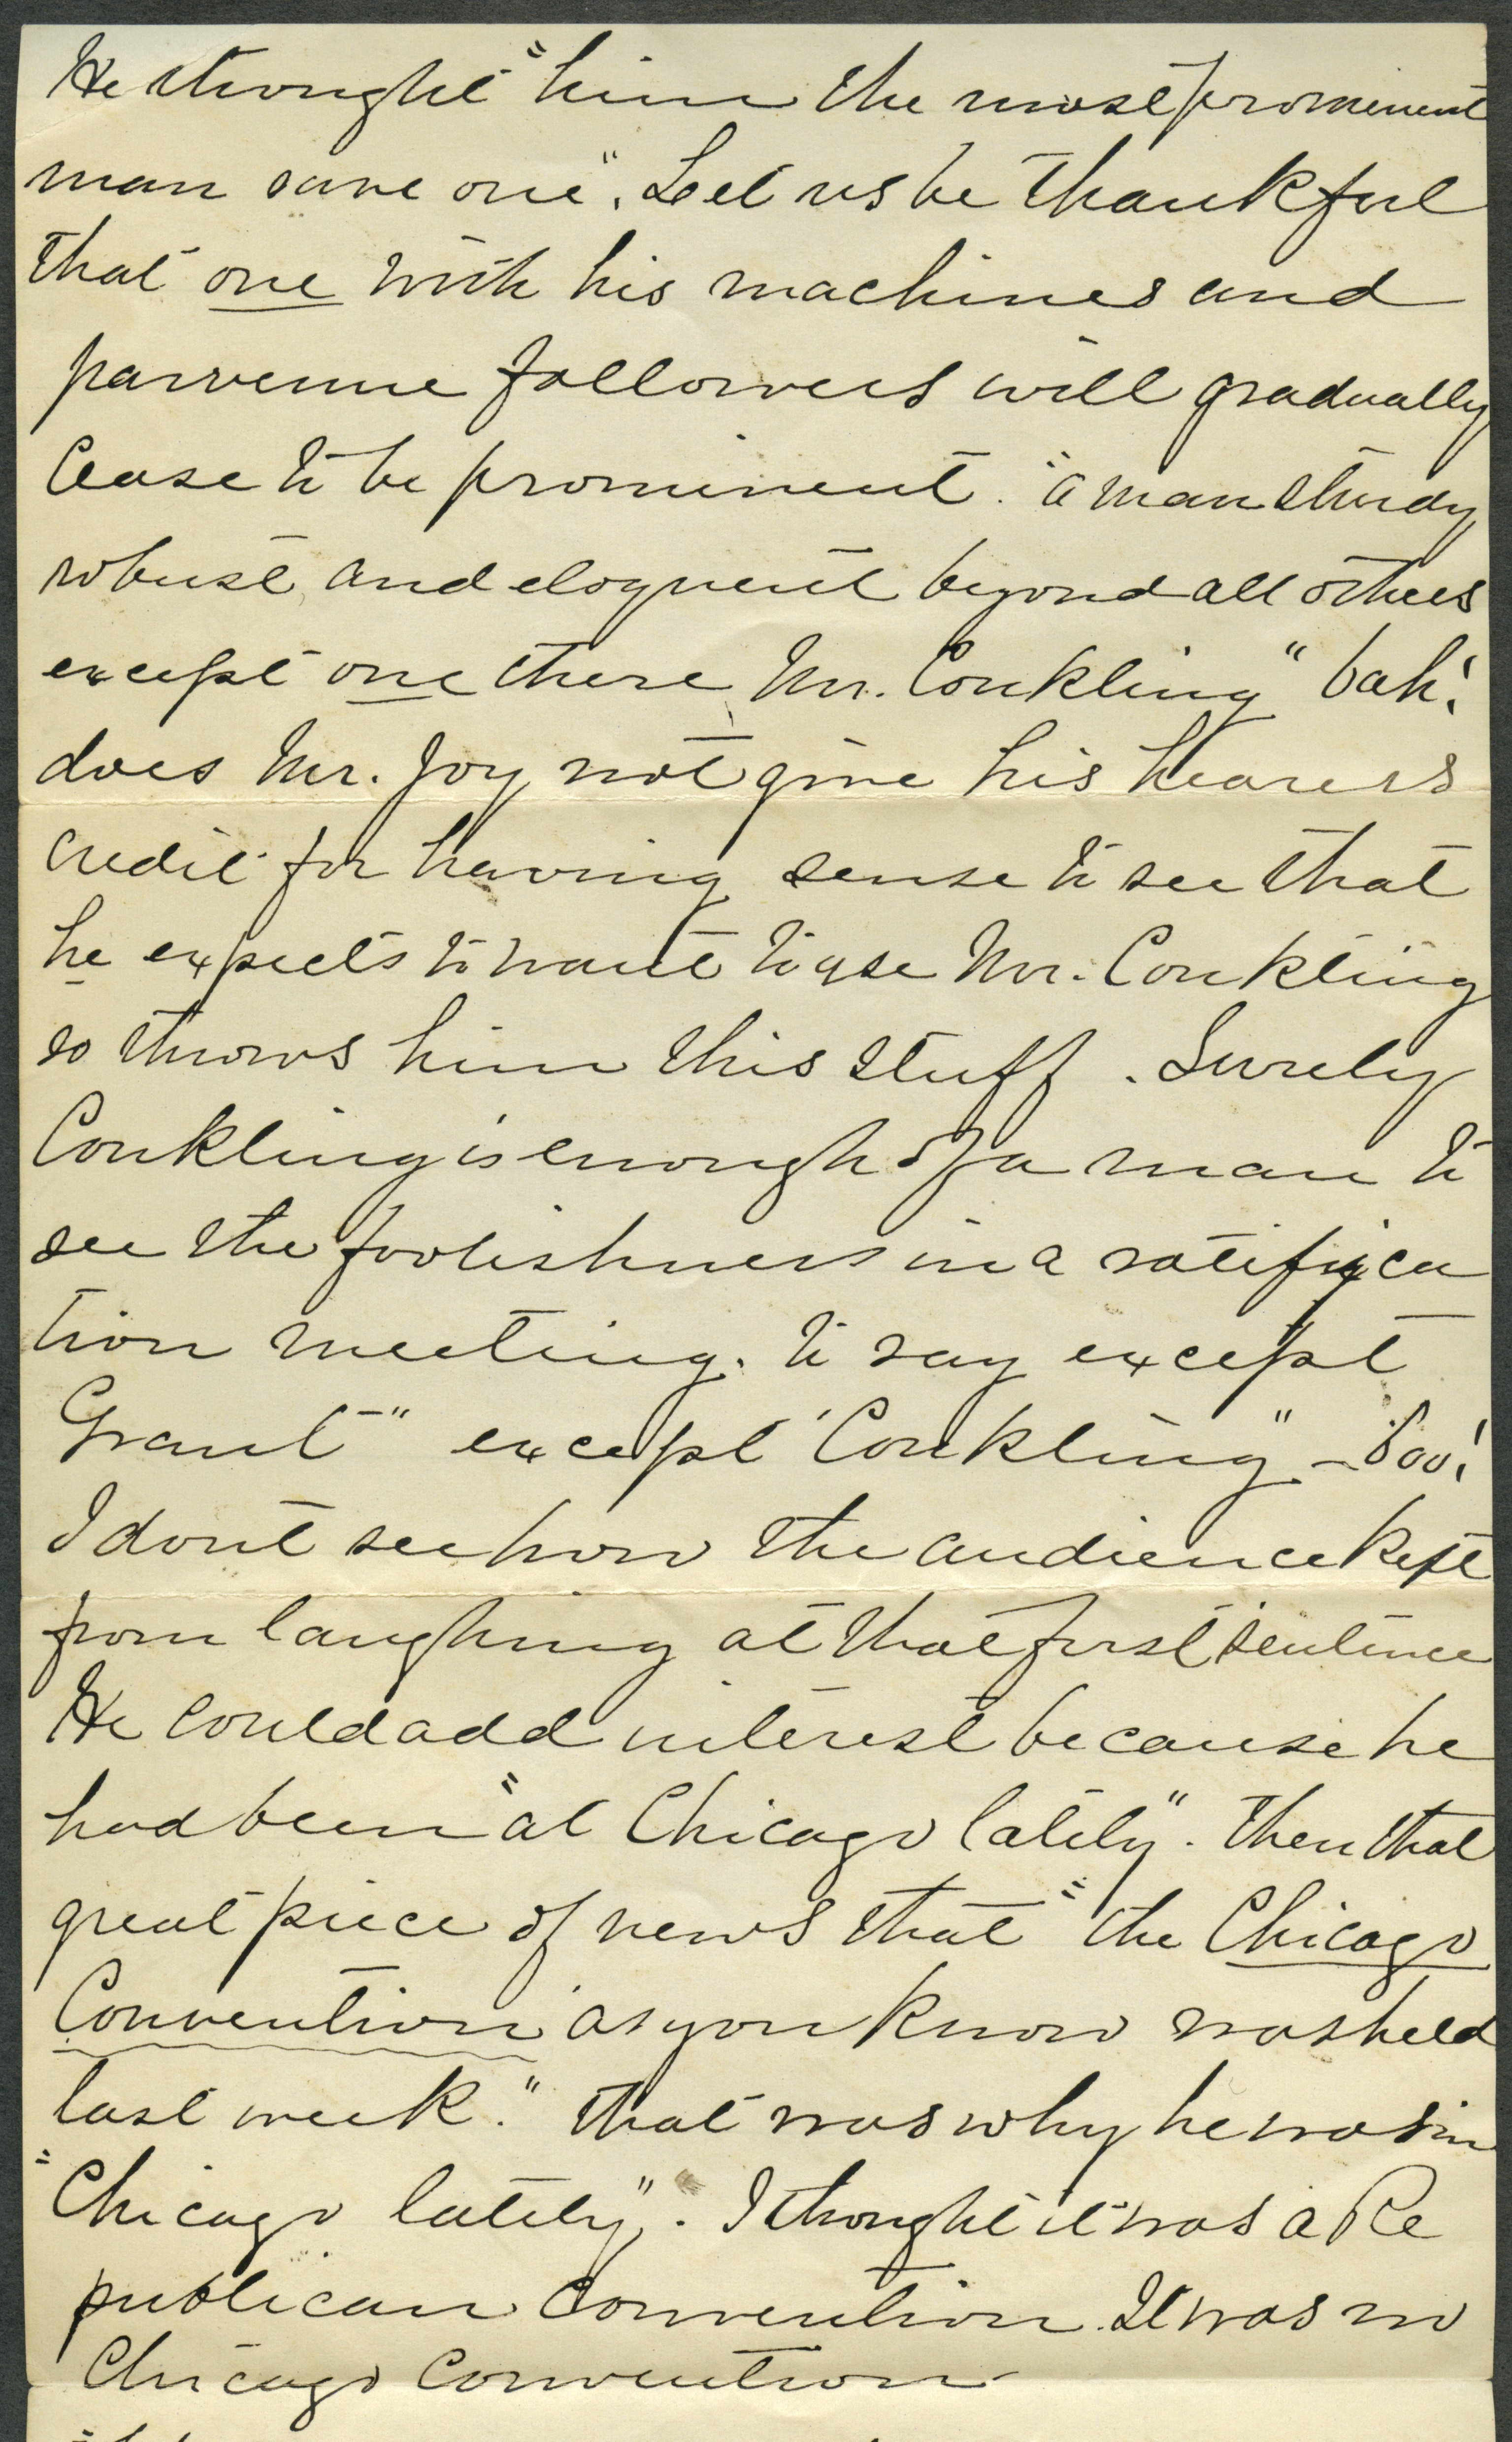 He thought "him the most prominent
man save one". Let us be thankful
that one with his machines and
parvenue followers will gradually
Cease to be prominent. "a man sturdy,
robust, and eloquent beyond all others
except one there Mr. Conkling" bah!
does Mr. Joy not give his hearers
credit for having sense to see that
he expects to want to use Mr. Conkling
so throws him this stuff. Surely
Conkling is enough of a man to
see the foolishness in a ratifica
tion meeting. to say except
Grant" except "Conkling" - boo!
I dont see how the audience kept
from laughing at that first sentence
He could add interest because he
had been "at Chicago lately". Then that
great piece of news that "the Chicago
Convention as you know was held
last week." That was why he was in
"Chicago lately". I thought it was a Re
publican Convention. It was no
Chicago Convention